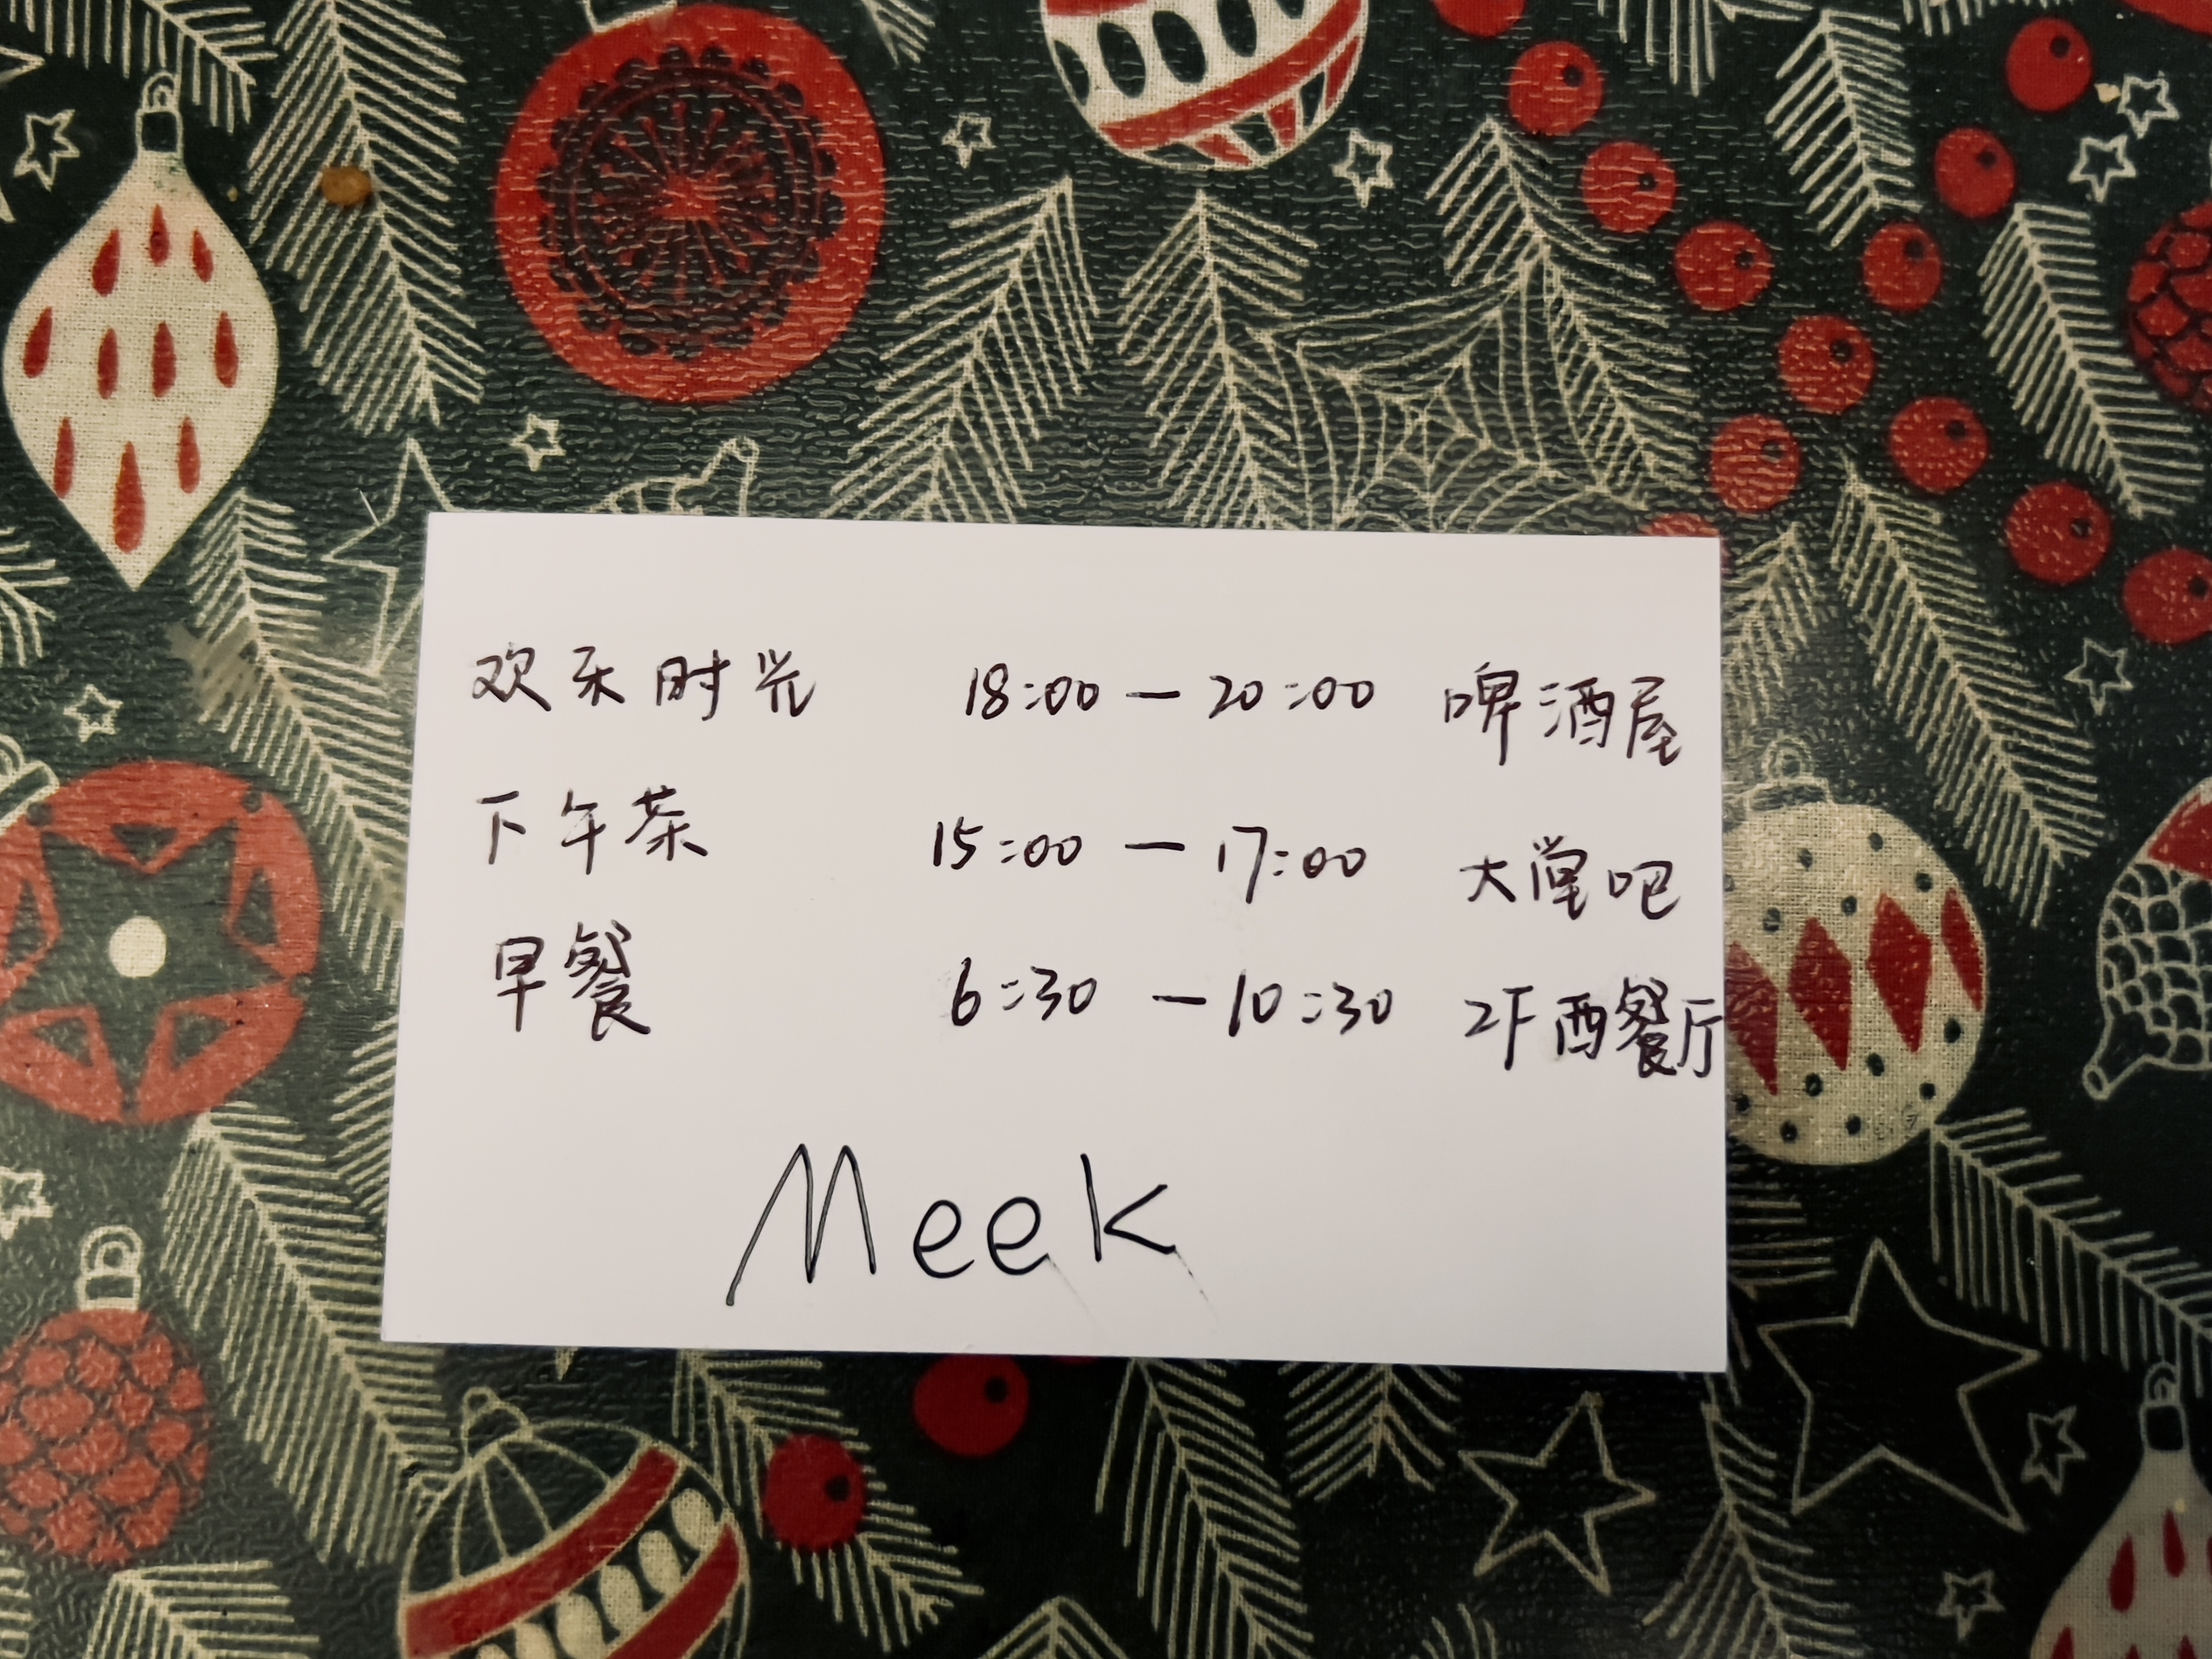 欢乐时光 18:00 — 20:00 啤酒屋
下午茶 15:00 — 17:00 大堂吧
早餐 6:30 — 10:30 2F西餐厅
Meek